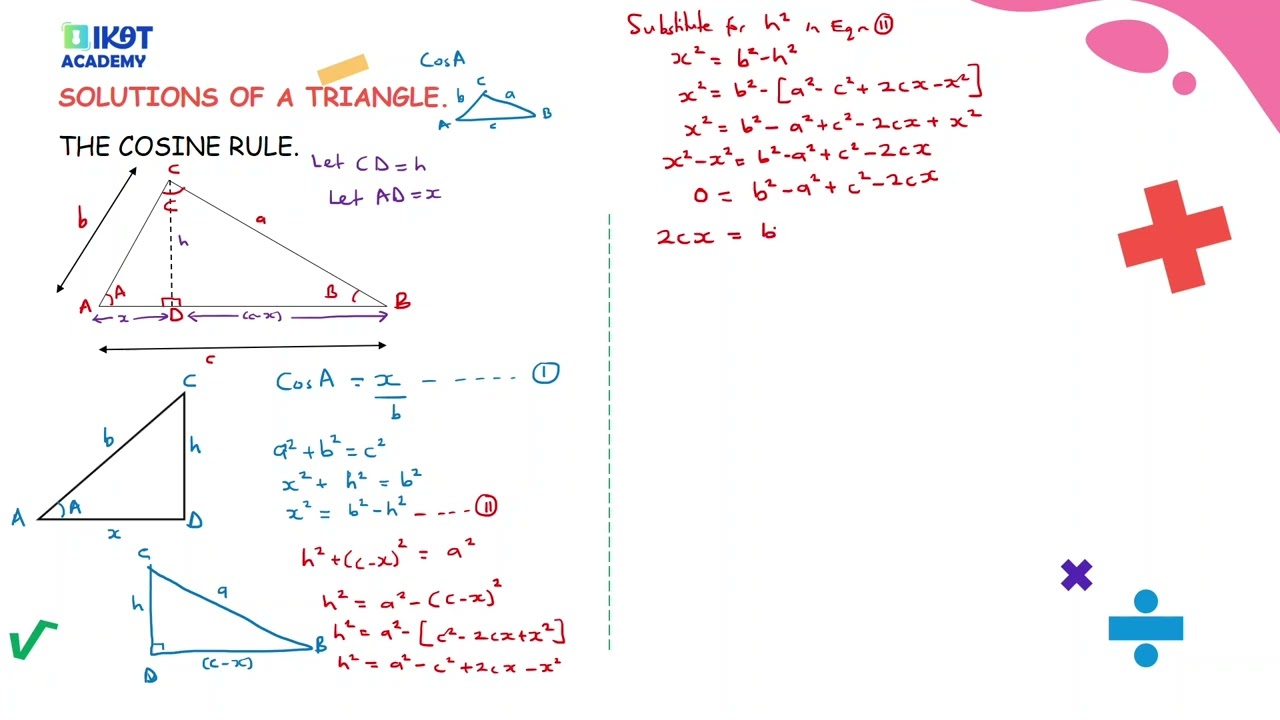 IKOT
ACADEMY
SOLUTIONS OF A TRIANGLE.
THE COSINE RULE.
CosA
C
b
a
A
c
B
Let CD = h
Let AD = x
C
C
b
a
h
A
A
B
B
x
D
(c-x)
c
C
b
h
A
A
x
D
CosA = x/b ------- (I)
a² + b² = c²
x² + h² = b²
x² = b² - h² ----- (II)
h² + (c-x)² = a²
h² = a² - (c-x)²
h² = a² - [c² - 2cx + x²]
h² = a² - c² + 2cx - x²
C
a
h
B
D
(c-x)
Substitute for h² in Eqn (II)
x² = b² - h²
x² = b² - [a² - c² + 2cx - x²]
x² = b² - a² + c² - 2cx + x²
x² - x² = b² - a² + c² - 2cx
0 = b² - a² + c² - 2cx
2cx = b